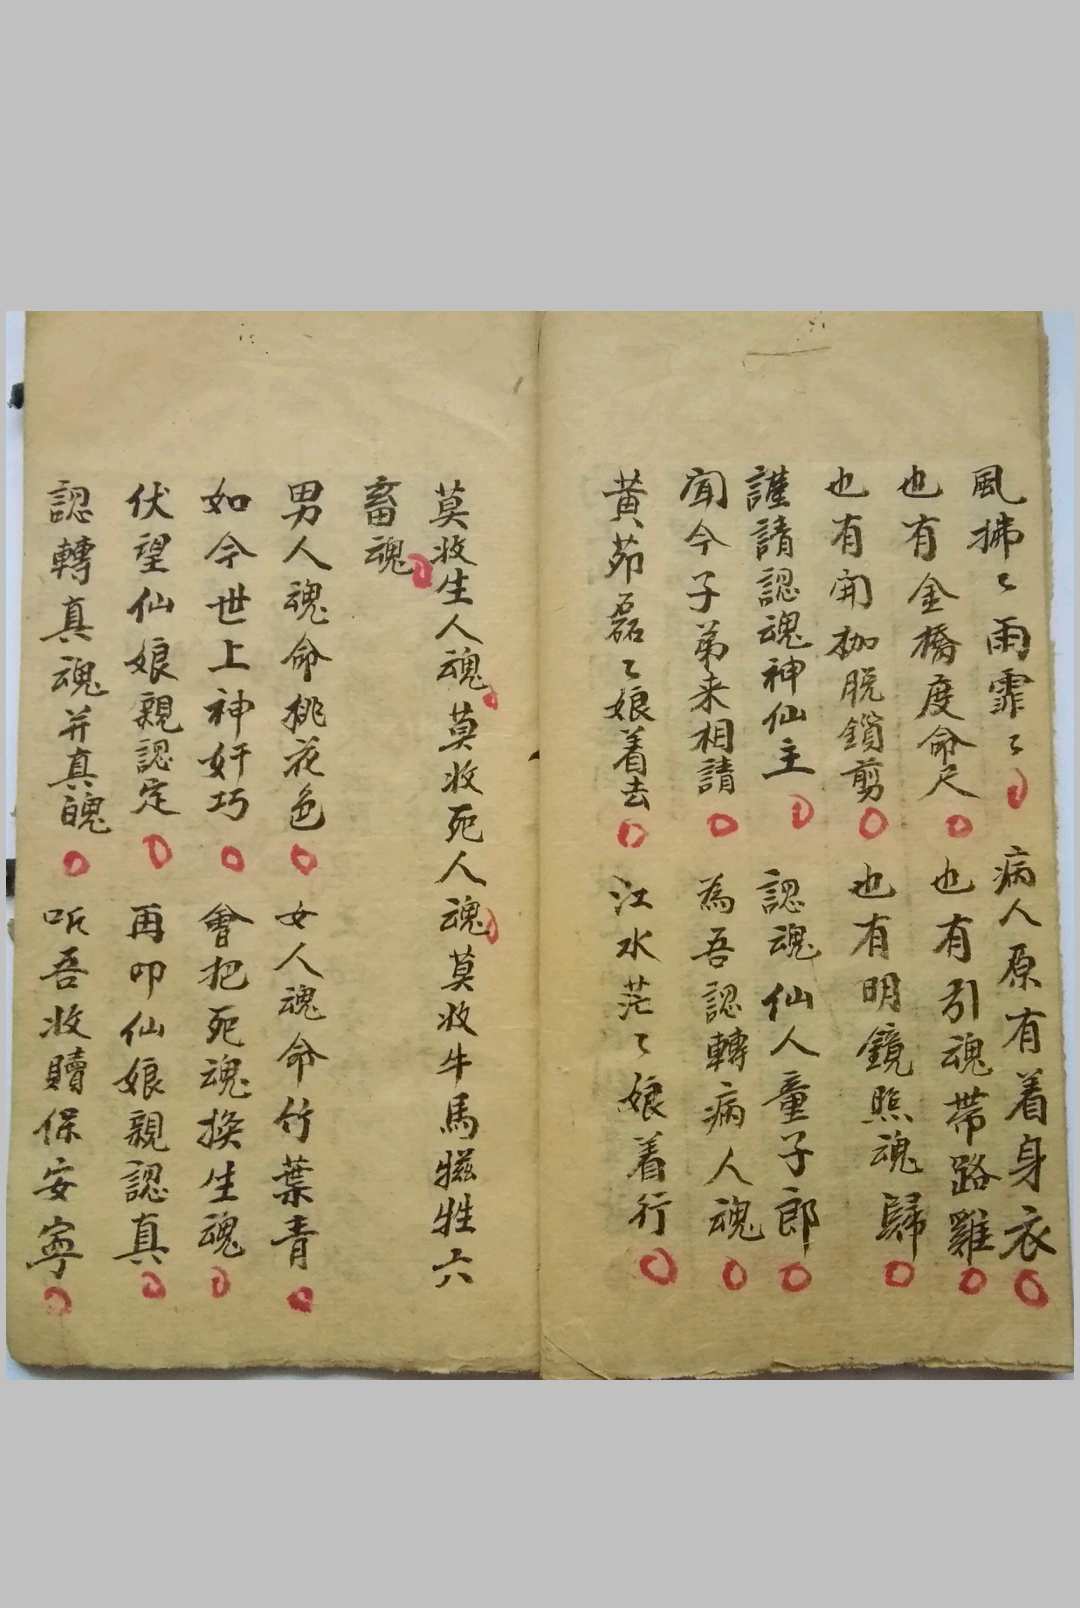 風拂〻雨霏〻 病人原有着身衣
也有金橋度命尺 也有引魂帶路雞
也有開枷脫鎖剪 也有明鏡照魂歸
謹請認魂神仙主 認魂仙人童子郎
聞今子弟来相請 為吾認轉病人魂
黄茆磊〻娘着去 江水茫〻娘着行
莫收生人魂莫收死人魂莫收牛馬犠牲六
畜魂
男人魂命桃花色 女人魂命竹葉青
如今世上神奸巧 會把死魂換生魂
伏望仙娘親認定 再叩仙娘親認真
認轉真魂并真魄 听吾收贖保安寧